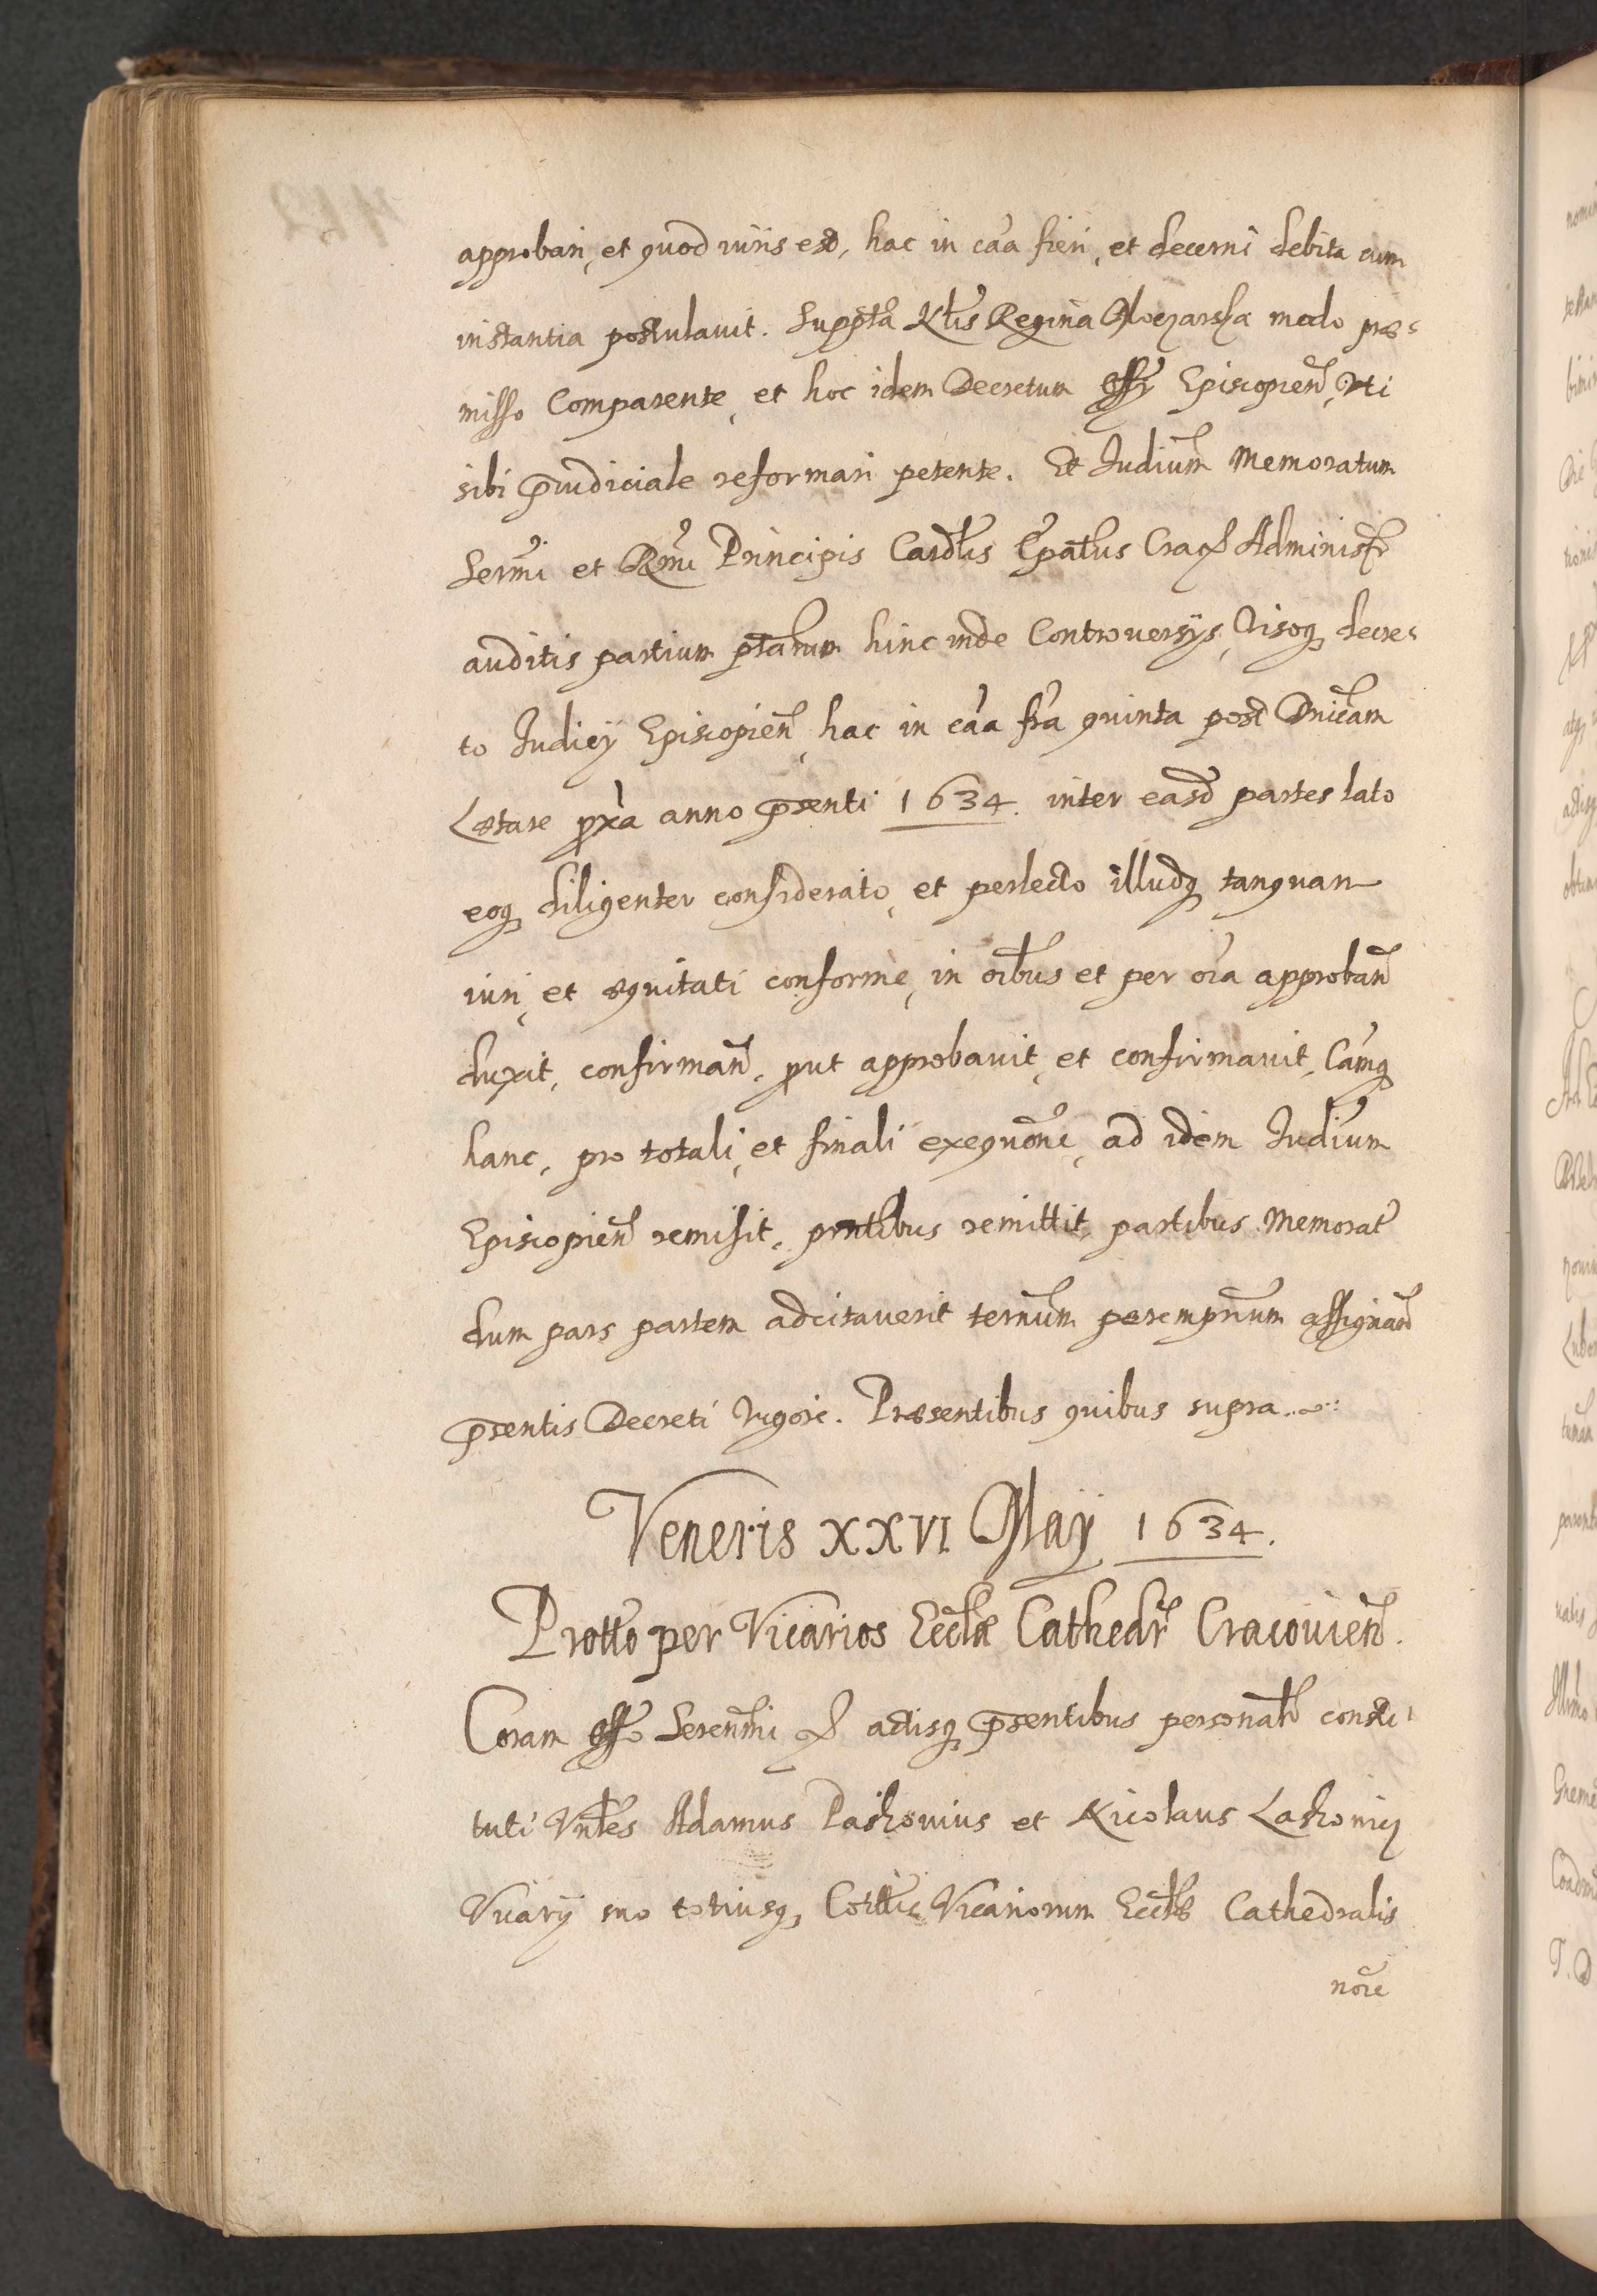 approbari, et quod iuris est, hac in cãa fieri, et decerni debita cum
instantia postulavit. Suppta Nlis Regina Moczarska modo præ-
misso Comparente, et hoc idem Decretum offy Episcopien, uti
sibi præiudiciale reformari petente. Et Iudium Memoratum
Sermi et Rmi Principis Cardlis Epatus Crac Administr
auditis partium ptarum hinc inde Controversijs, Visoq decre-
to Iudicij Episcopien, hac in cãa fra quinta post Dnicam
Lætare pxa anno præsenti 1634. inter easd partes lato
eoq diligenter considerato, et perlecto illudq tanquam
iuri, et æquitati conforme, in oibus et per oia approban
duxit, confirman, prout approbavit, et confirmavit, Camq
hanc, pro totali, et finali exequõne, ad idem Iudium
Episcopien remisit, pntibus remittit, partibus Memorat
dum pars partem adcitaverit ternum peremprium assignan
præsentis Decreti vigore. Præsentibus quibus supra.
Veneris XXVI Maij 1634.
Protto per Vicarios Ecclæ Cathedr Cracovien.
Coram offo Serenmi & actisq præsentibus personalr consti-
tuti Vnles Adamus Paskovius et Nicolaus Laskonicz
Vicarij suo totiusq, Cottis Vicariorum Ecclæ Cathedralis
nõie